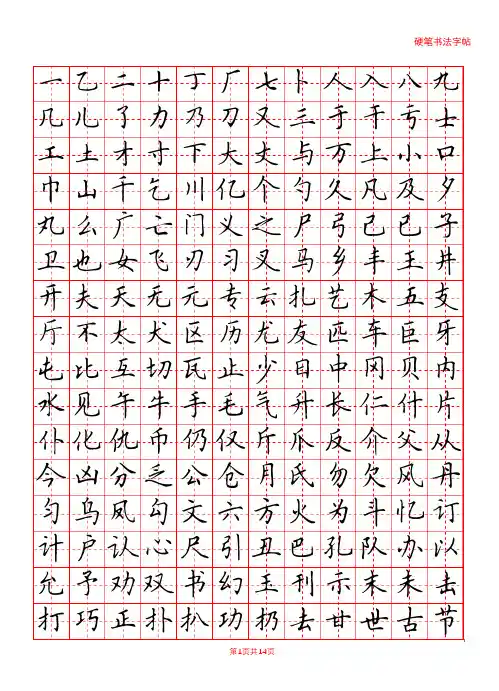 硬笔书法字帖
一乙二十丁厂七卜人入八九
几儿了力乃刀又三于干亏士
工土才寸下大丈与万上小口
巾山千乞川亿个勺久凡及夕
丸么广亡门义之尸弓己已子
卫也女飞刃习叉马乡丰王井
开夫天无元专云扎艺木五支
厅不太犬区历尤友匹车巨牙
屯比互切瓦止少日中冈贝内
水见午牛手毛气升长仁什片
仆化仇币仍仅斤爪反介父从
今凶分乏公仓月氏勿欠风丹
匀乌凤勾文六方火为斗忆订
计户认心尺引丑巴孔队办以
允予劝双书幻玉刊示末未击
打巧正扑扒功扔去甘世古节
第1页共14页